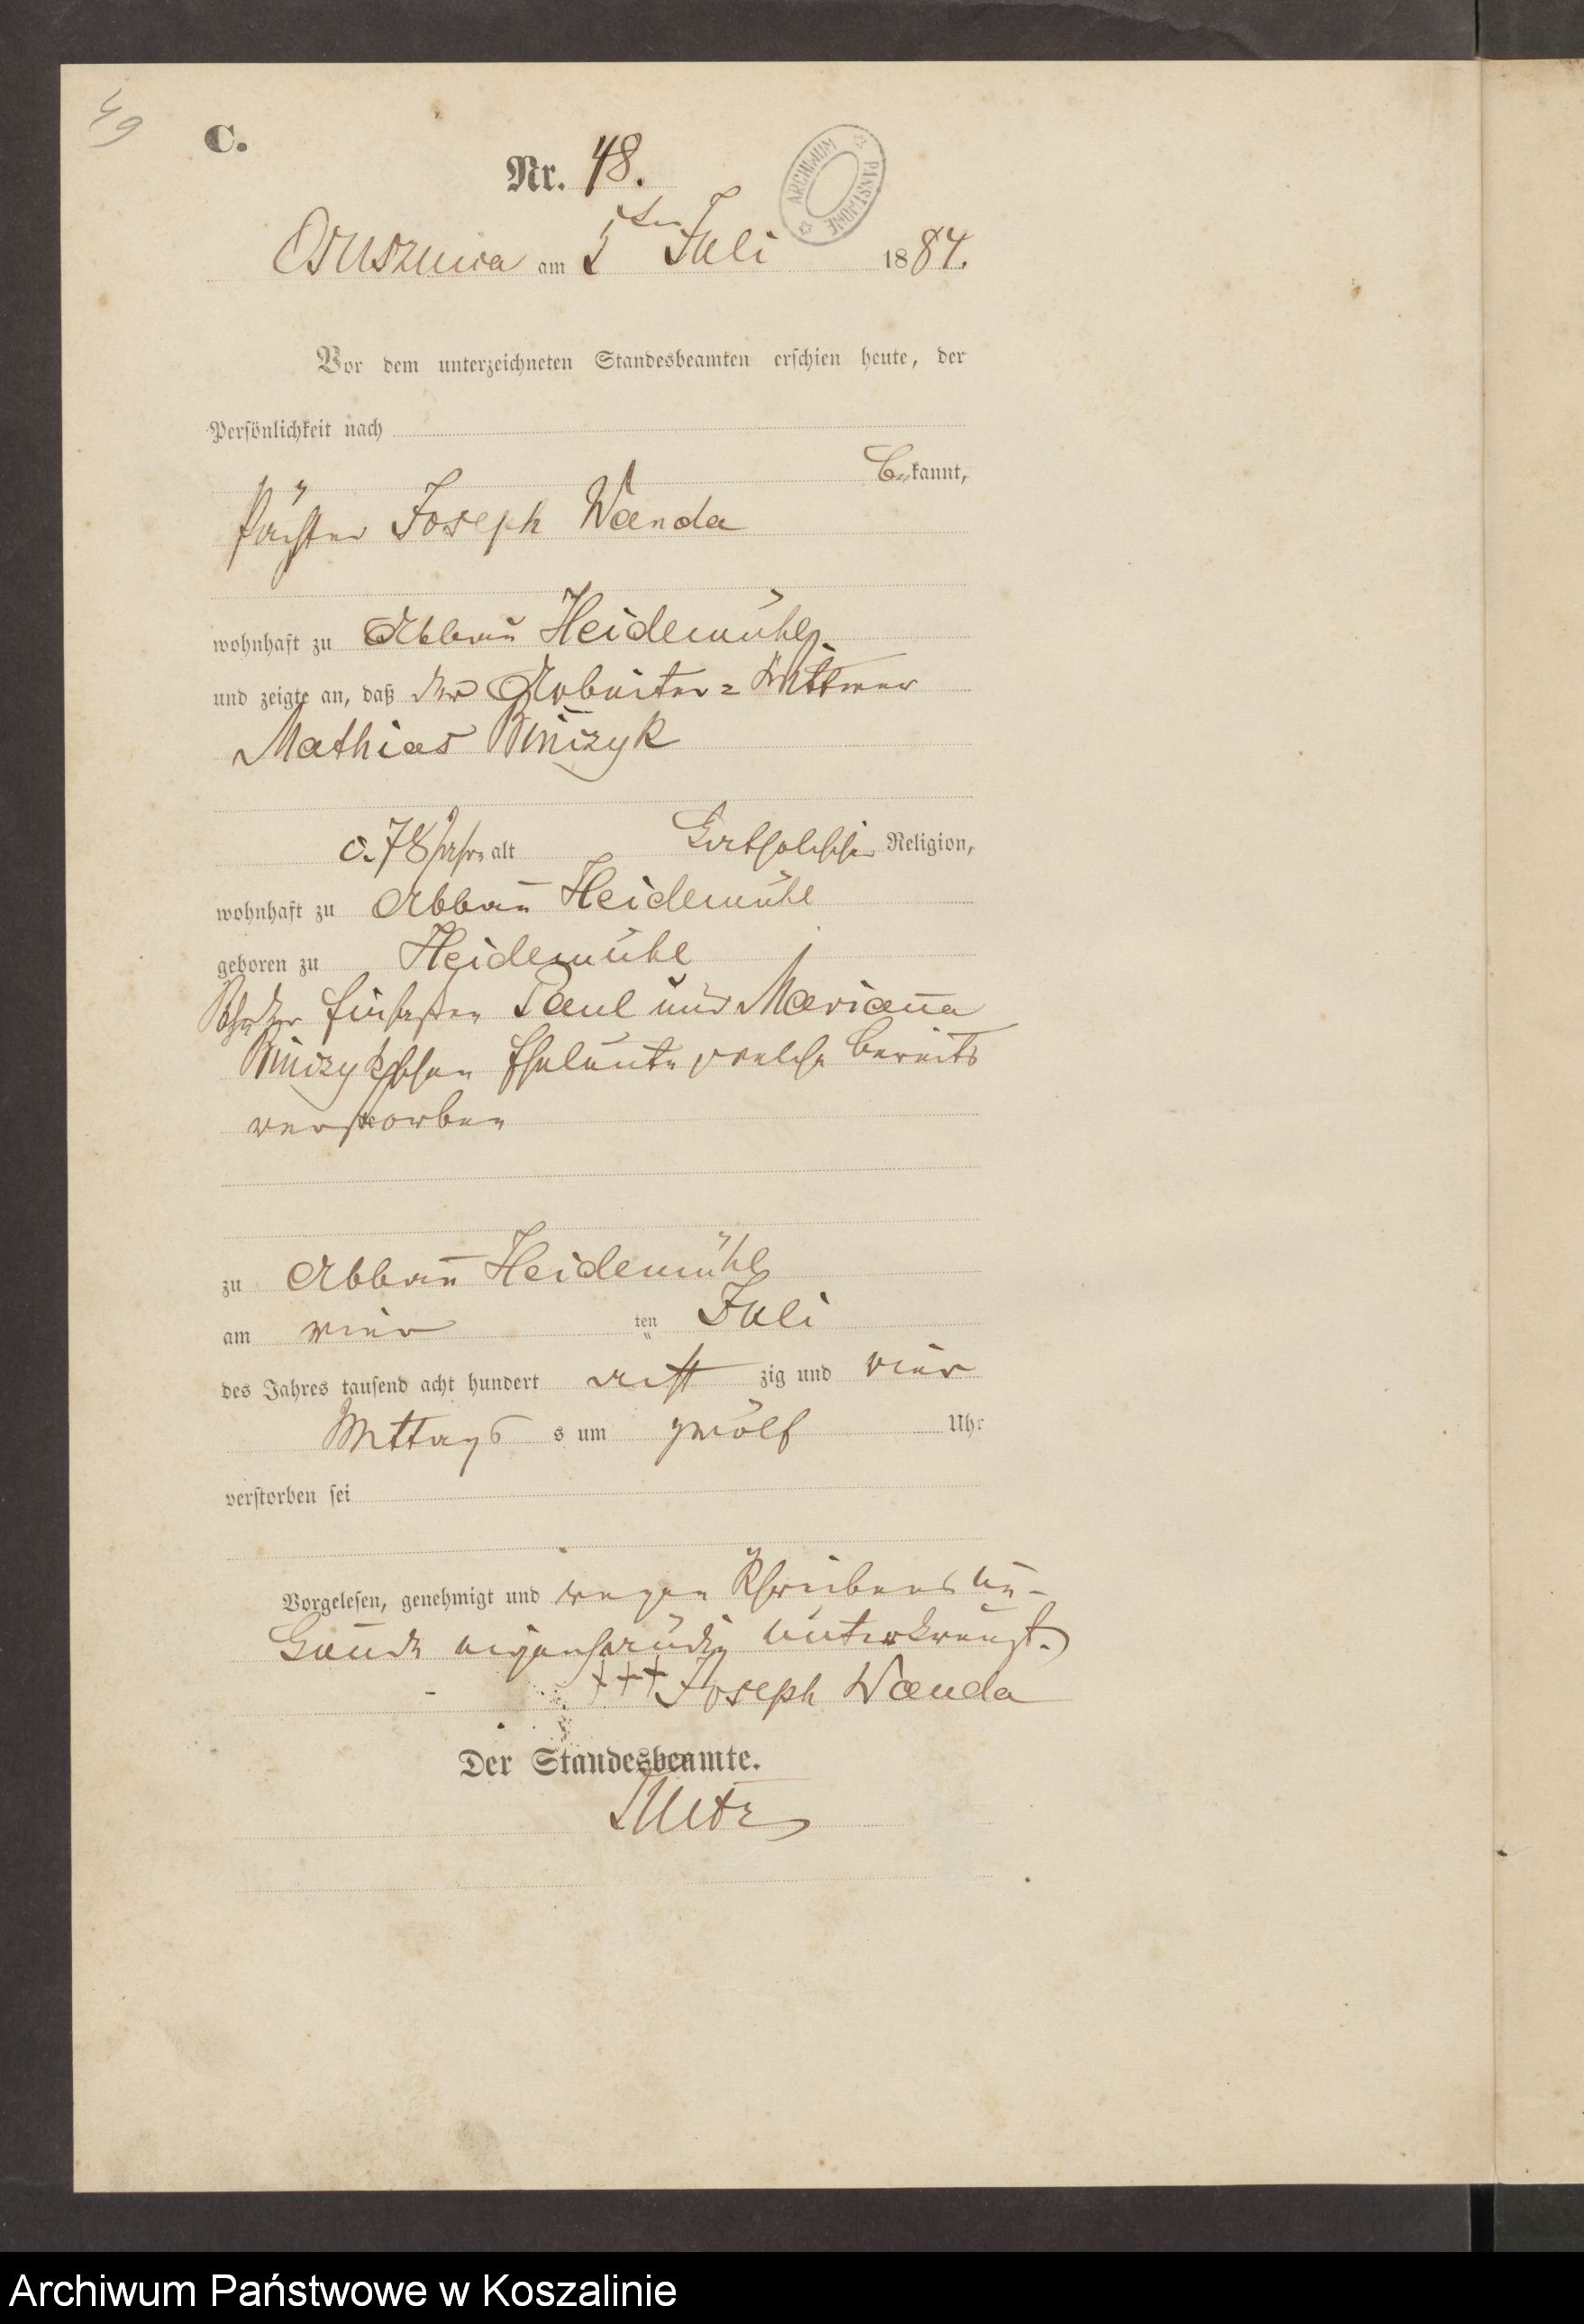 49
C.
Nr. 48.
ARCHIWUM PAŃSTWOWE
Osusznica am 5ten Juli 1884.
Vor dem unterzeichneten Standesbeamten erschien heute, der
Persönlichkeit nach
bekannt,
Joseph Wanda
wohnhaft zu Abbau Heidemühle
und zeigte an, daß der Arbeiter= Wittwer
Mathias
c. 78 Jahre alt katholischer Religion,
wohnhaft zu Abbau Heidemühl
geboren zu Heidemühl
Sohn der Einsaßen Paul und Marianna
Eheleute welche bereits
verstorben
zu Abbau Heidemühle
am vier ten Juli
des Jahres tausend acht hundert acht zig und vier
Mittags s um zwölf Uhr
verstorben sei
Vorgelesen, genehmigt und wegen Schreibens un-
kunde eigenhändig unterkreuzt.
+++ Joseph Wanda
Der Standesbeamte.
Archiwum Państwowe w Koszalinie